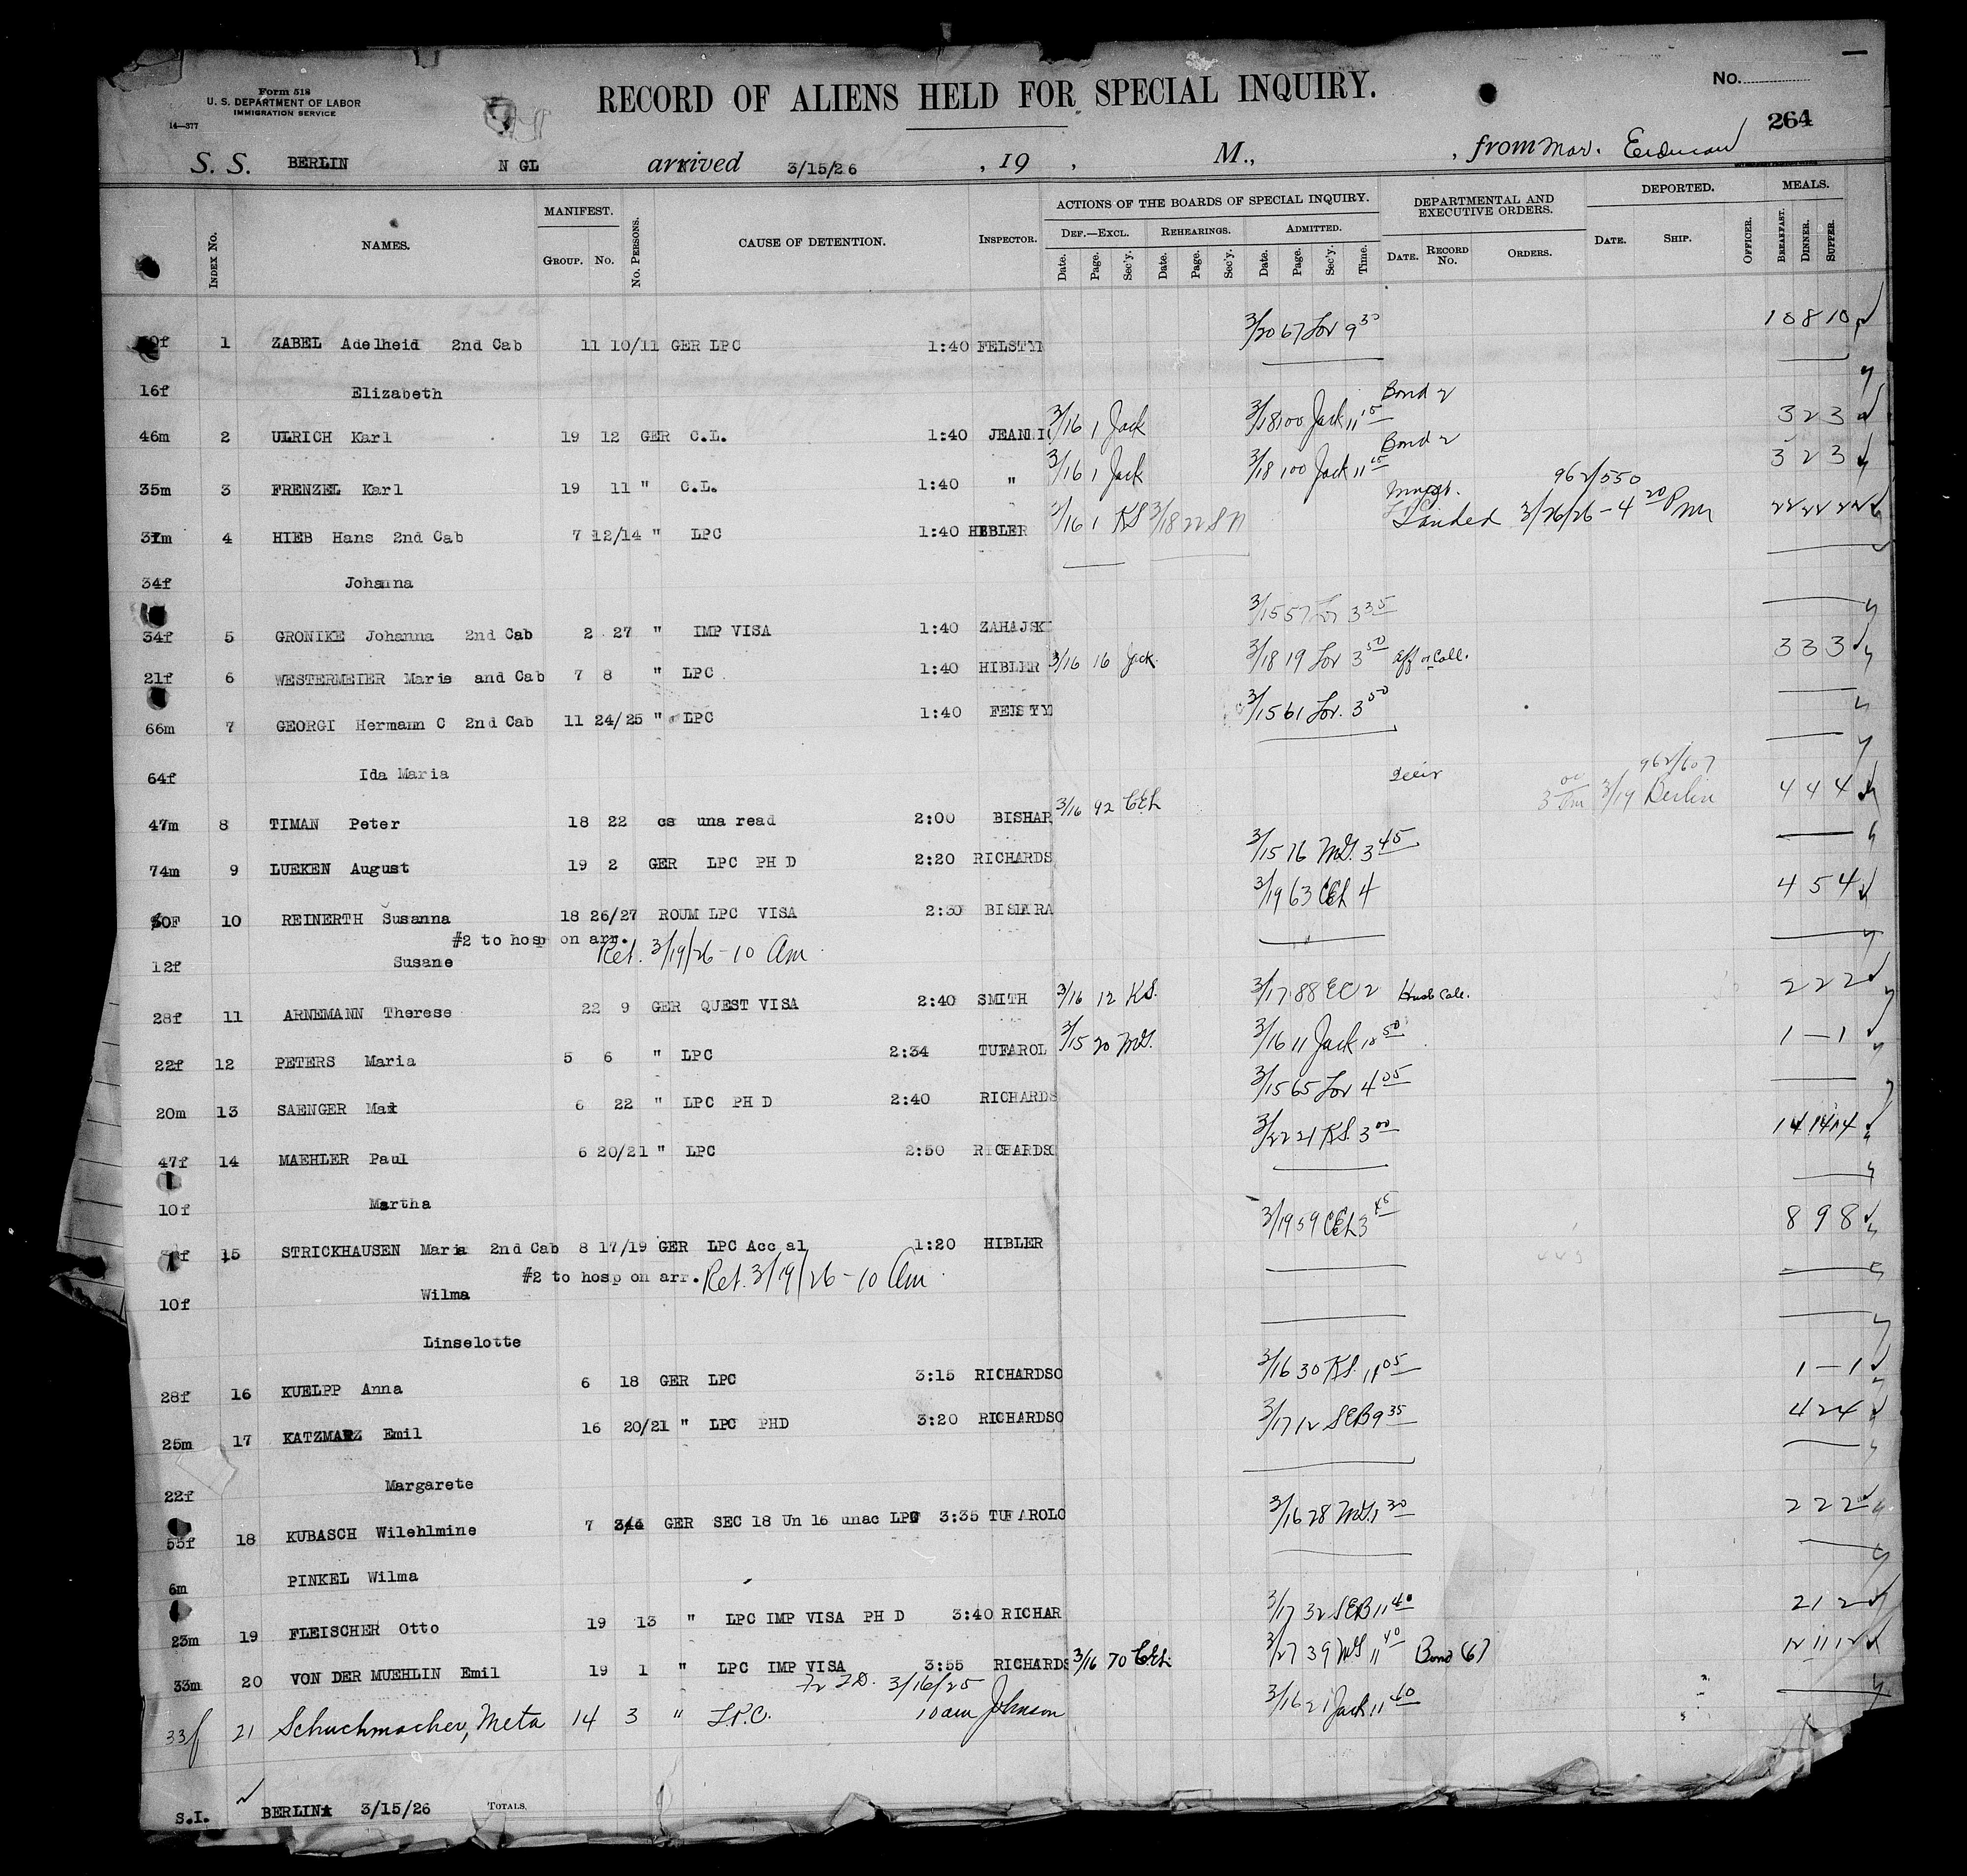 Form 518
U. S. DEPARTMENT OF LABOR
IMMIGRATION SERVICE
14—377
RECORD OF ALIENS HELD FOR SPECIAL INQUIRY.
No.
264
S. S. BERLIN N GL arrived 3/15/26 , 19 , M., , from
INDEX No. NAMES. MANIFEST. GROUP. No. No. PERSONS. CAUSE OF DETENTION. INSPECTOR. ACTIONS OF THE BOARDS OF SPECIAL INQUIRY. DEF.—EXCL. Date. Page. Sec'y. REHEARINGS. Date. Page. Sec'y. ADMITTED. Date. Page. Sec'y. Time. DEPARTMENTAL AND EXECUTIVE ORDERS. DATE. RECORD No. ORDERS. DEPORTED. DATE. SHIP. OFFICER. MEALS. BREAKFAST. DINNER. SUPPER.
1 ZABEL Adelheid 2nd Cab 11 10/11 GER LPC 1:40 FELSTYN 3/20 67 Lor 9 30 10 8 10
16f Elizabeth
46m 2 ULRICH Karl 19 12 GER C.L. 1:40 3/16 1 Jack 3/18 100 Jack 11 15 Bond 2 3 2 3
35m 3 FRENZEL Karl 19 11 " C.L. 1:40 " 3/16 1 Jack 3/18 100 Jack 11 15 Bond 2 3 2 3
4 HIEB Hans 2nd Cab 7 12/14 " LPC 1:40 HIBLER 3/16 1 KS 3/18 22 S N Landed 3/26/26 - 4 20 Pm 962/550
34f Johanna
34f 5 GRONIKE Johanna 2nd Cab 2 27 " IMP VISA 1:40 ZAHAJSKI 3/15 57 Lor 3 35
21f 6 WESTERMEIER Marie and Cab 7 8 " LPC 1:40 HIBLER 3/16 16 Jack 3/18 19 Lor 3 50 3 3 3
66m 7 GEORGI Hermann C 2nd Cab 11 24/25 " LPC 1:40 3/15 61 Lor. 3 50
64f Ida Maria
47m 8 TIMAN Peter 18 22 cs una read 2:00 BISHAR 3/16 92 CEL 3/19 Berlin 962/607 4 4 4
74m 9 LUEKEN August 19 2 GER LPC PH D 2:20 RICHARDS 3/15 76 MG. 3 45
10 REINERTH Susanna 18 26/27 ROUM LPC VISA 2:30 3/19 63 CEL 4 4 5 4
#2 to hosp on arr. Ret. 3/19/26 - 10 Am
12f Susane
28f 11 ARNEMANN Therese 22 9 GER QUEST VISA 2:40 SMITH 3/16 12 KS. 3/17 88 EC 2 2 2 2
22f 12 PETERS Maria 5 6 " LPC 2:34 TUFAROL 3/15 20 MG. 3/16 11 Jack 10 50 1 — 1
20m 13 SAENGER Max 6 22 " LPC PH D 2:40 RICHARDS 3/15 65 Lor 4 05
47f 14 MAEHLER Paul 6 20/21 " LPC 2:50 RICHARDSO 3/22 21 KS 3 00 14 14 14
10f Martha
15 STRICKHAUSEN Maria 2nd Cab 8 17/19 GER LPC Acc al 1:20 HIBLER 3/19 59 CEL 3 45 8 9 8
#2 to hosp on arr. Ret. 3/19/26 - 10 Am
10f Wilma
Linselotte
28f 16 KUELPP Anna 6 18 GER LPC 3:15 RICHARDSO 3/16 30 KS. 11 05 1 — 1
25m 17 KATZMARZ Emil 16 20/21 " LPC PHD 3:20 RICHARDSO 3/17 12 SEB 9 35 4 2 4
22f Margarete
55f 18 KUBASCH Wilehlmine 7 GER SEC 18 Un 16 unac LPC 3:35 TUFAROLO 3/16 28 MG. 1 30 2 2 2
6m PINKEL Wilma
23m 19 FLEISCHER Otto 19 13 " LPC IMP VISA PH D 3:40 RICHAR 3/17 32 SEB 11 40 2 1 2
33m 20 VON DER MUEHLIN Emil 19 1 " LPC IMP VISA 3:55 RICHARDS 3/16 70 CEL 3/27 39 MG 11 40 Bond (6) 12 11 12
3/16/25
33f 21 Schuchmacher, Meta 14 3 " L.P.C. 10 am Johnson 3/16 21 Jack 11 40
S.I. BERLIN 3/15/26 TOTALS.